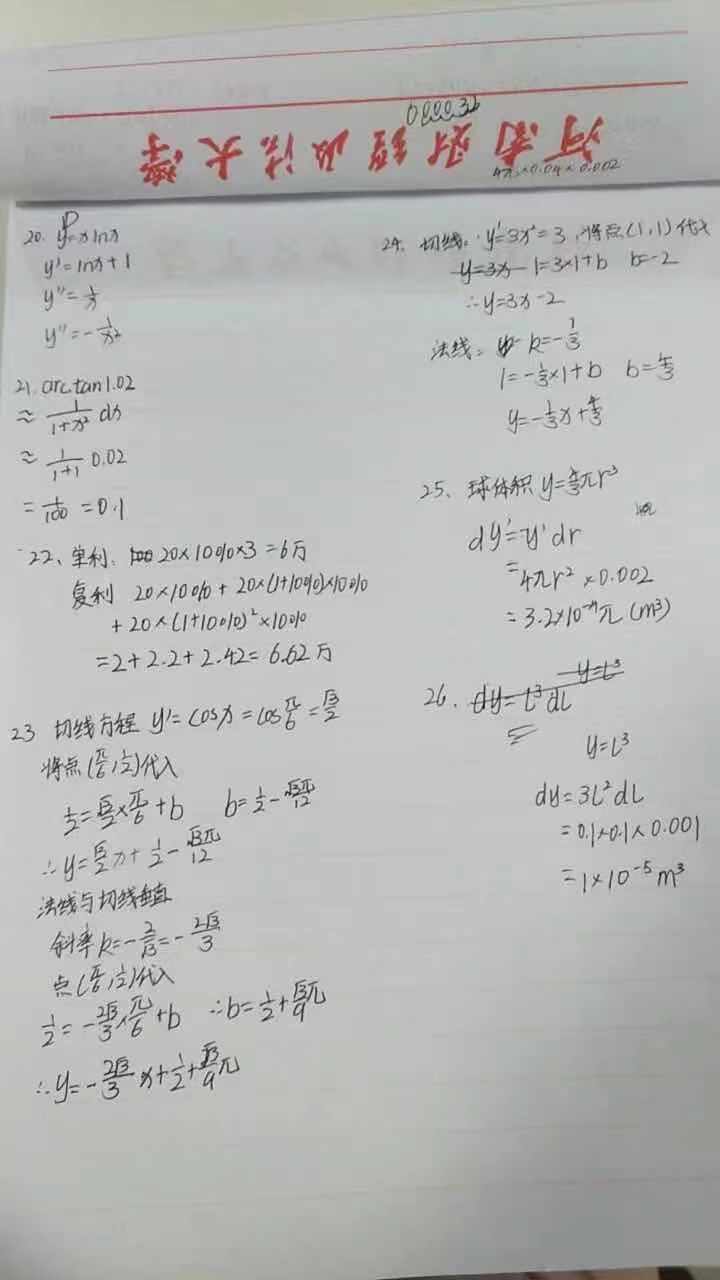 河南财经政法大学
000032
4π×0.04×0.002
20. y=xlnx
y'=lnx+1
y''=1/x
y''=-1/x²
21. arctan1.02
≈ 1/(1+x²) dx
≈ 1/(1+1) 0.02
= 1/100 = 0.1
22、单利: 20×10%×3=6万
复利 20×10%+20×(1+10%)×10%
+20×(1+10%)²×10%
=2+2.2+2.42=6.62万
23 切线方程 y'=cosx=cosπ/6=√3/2
将点(π/6,1/2)代入
1/2=√3/2×π/6+b b=1/2-√3π/12
∴y=√3/2x+1/2-√3π/12
法线与切线垂直
斜率k=-2/√3=-2√3/3
点(π/6,1/2)代入
1/2=-2√3/3×π/6+b ∴b=1/2+√3/9π
∴y=-2√3/3x+1/2+√3/9π
24. 切线: y'=3x²=3,将点(1,1)代入
y=3x 1=3×1+b b=-2
∴y=3x-2
法线: k=-1/3
1=-1/3×1+b b=4/3
y=-1/3x+4/3
25、球体积y=4/3πr³
dy'=y'dr
=4πr²×0.002
=3.2×10⁻⁴π(m³)
y=L³
26. dy=L³dL
y=L³
dy=3L²dL
=0.1×0.1×0.001
=1×10⁻⁵m³